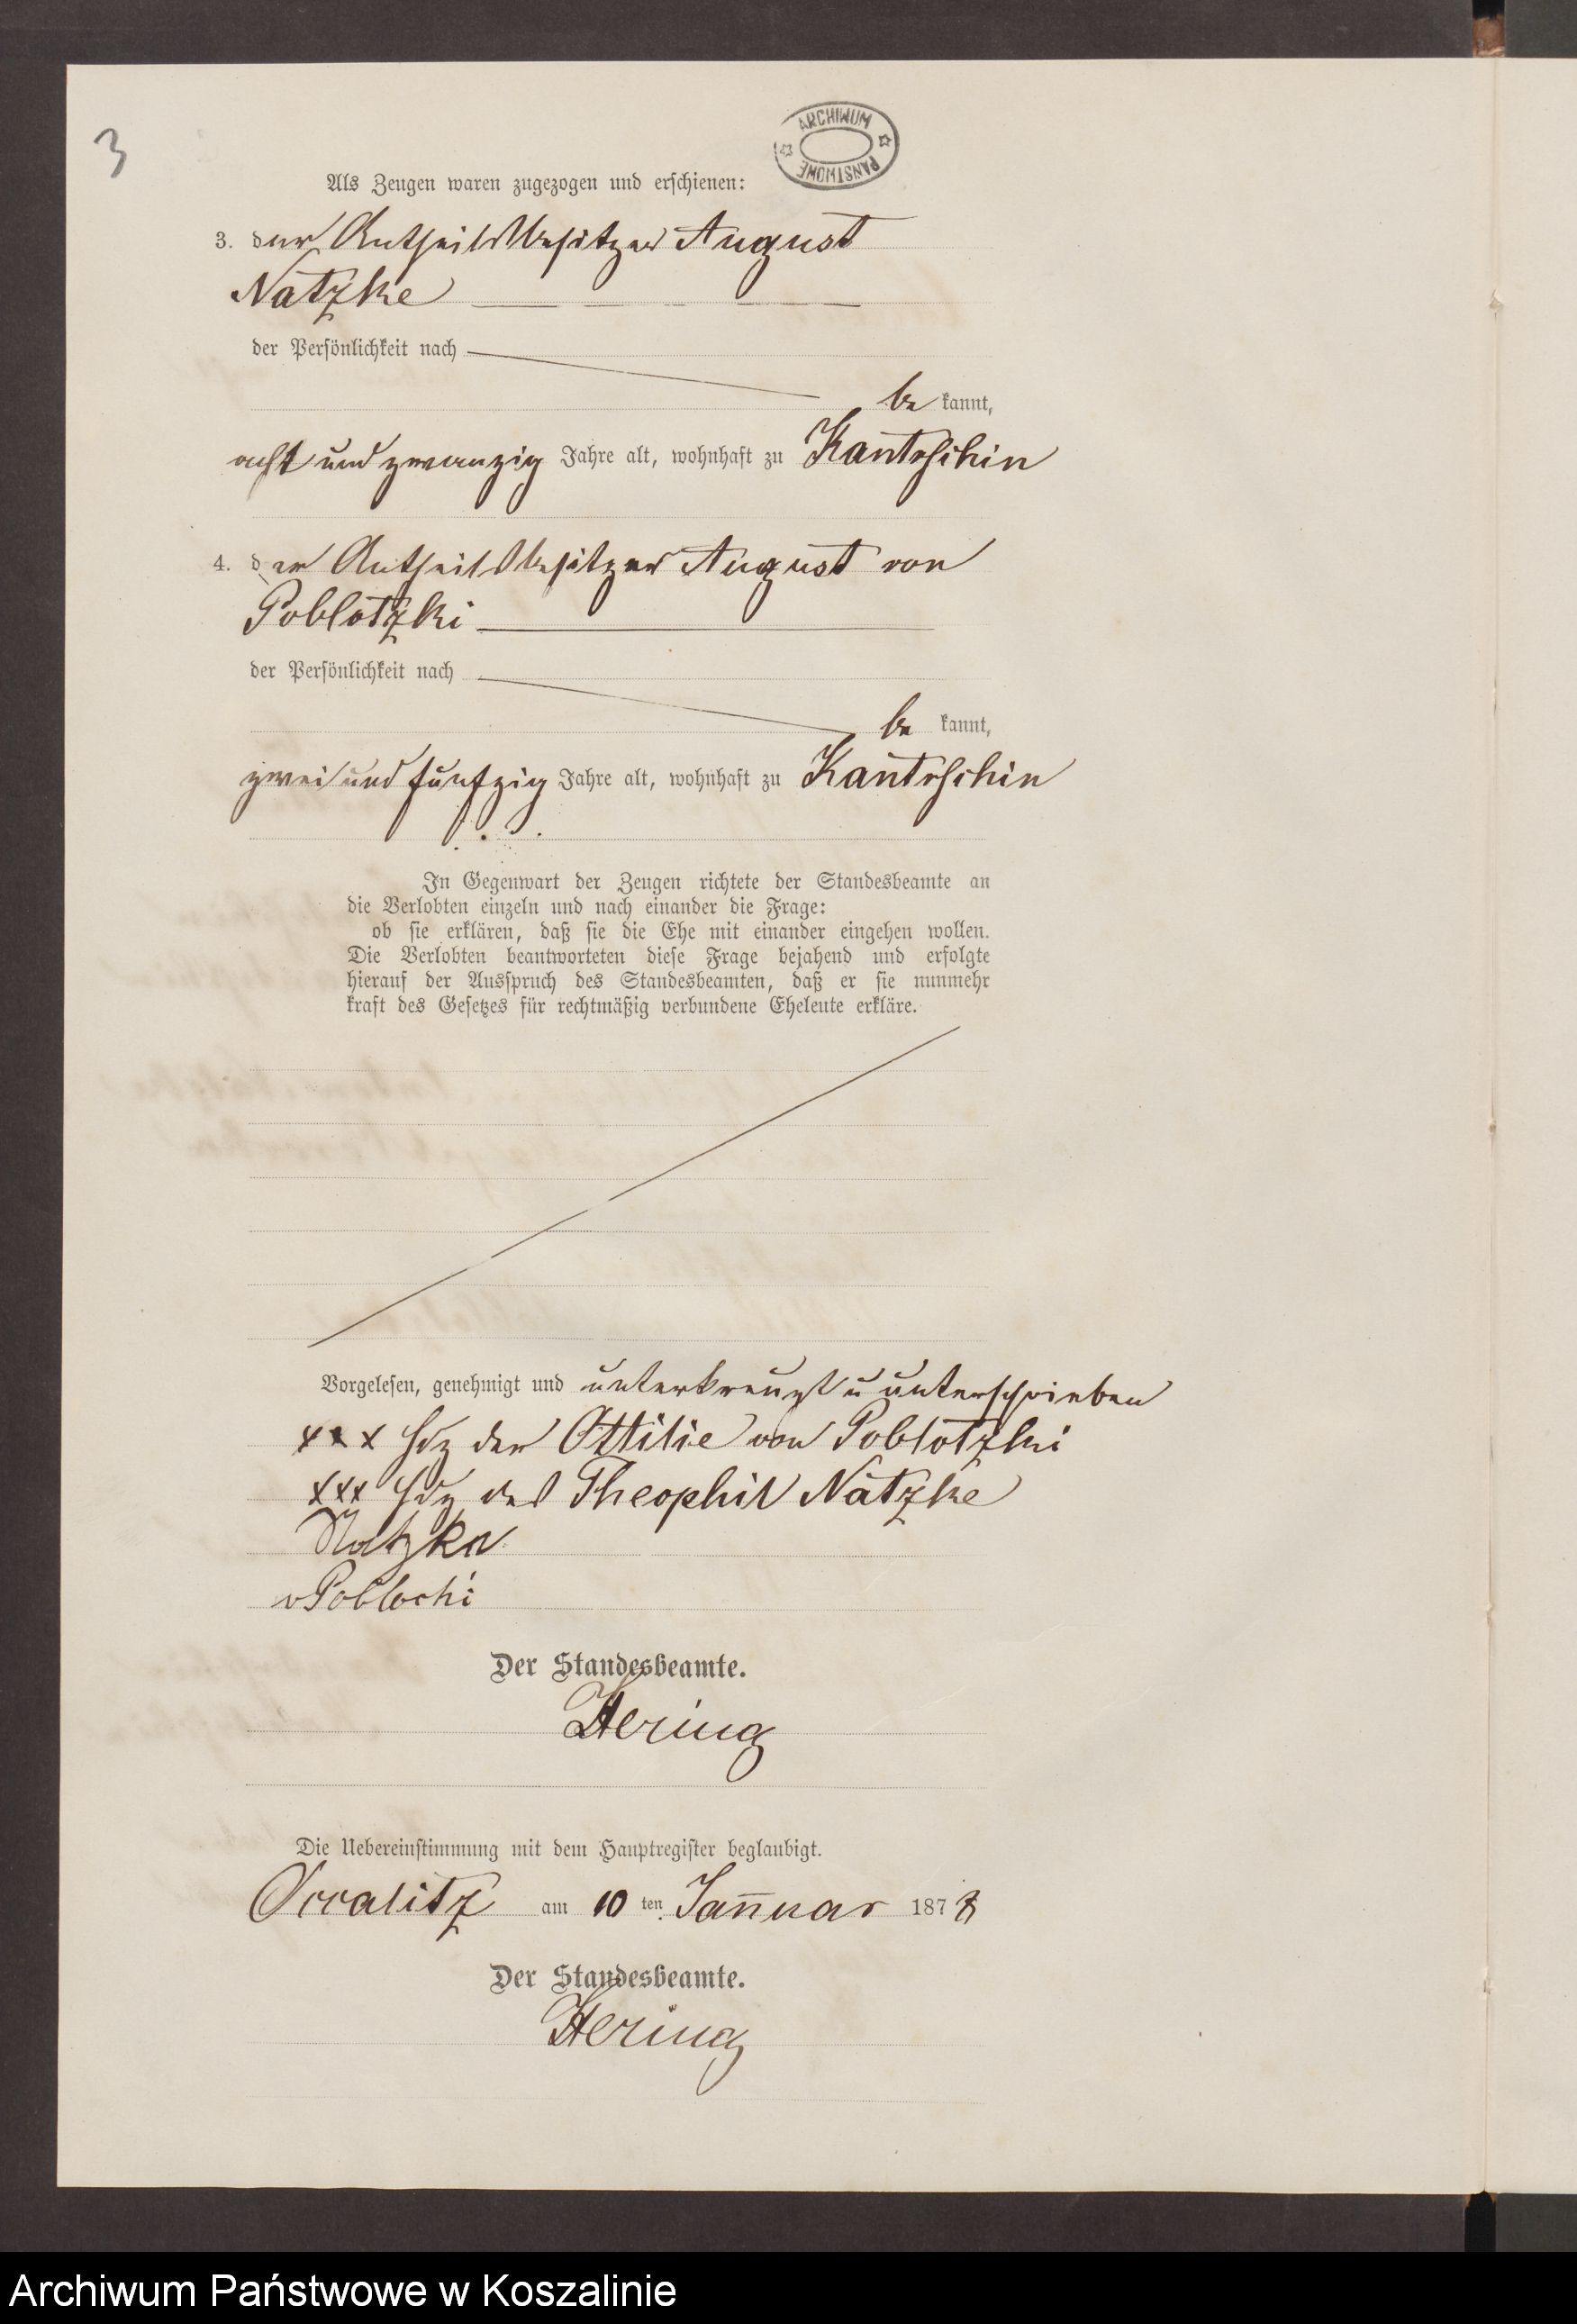 3
ARCHIWUM
PAŃSTWOWE
Als Zeugen waren zugezogen und erschienen:
3. der Antheilsbesitzer August
Natzke
der Persönlichkeit nach
be kannt,
acht und zwanzig Jahre alt, wohnhaft zu Kantrschin
4. der Antheilsbesitzer August von
Poblotzki
der Persönlichkeit nach
be kannt,
zwei und fünfzig Jahre alt, wohnhaft zu Kantrschin
In Gegenwart der Zeugen richtete der Standesbeamte an
die Verlobten einzeln und nach einander die Frage:
ob sie erklären, daß sie die Ehe mit einander eingehen wollen.
Die Verlobten beantworteten diese Frage bejahend und erfolgte
hierauf der Ausspruch des Standesbeamten, daß er sie nunmehr
kraft des Gesetzes für rechtmäßig verbundene Eheleute erkläre.
Vorgelesen, genehmigt und unterkreuzt u unterschrieben
xxx Hdz der Ottilie von Poblotzki
xxx Hdz des Theophil Natzke
Natzke
v Poblocki
Der Standesbeamte.
Hering
Die Uebereinstimmung mit dem Hauptregister beglaubigt.
Occalitz am 10 ten Januar 1878
Der Standesbeamte.
Hering
Archiwum Państwowe w Koszalinie